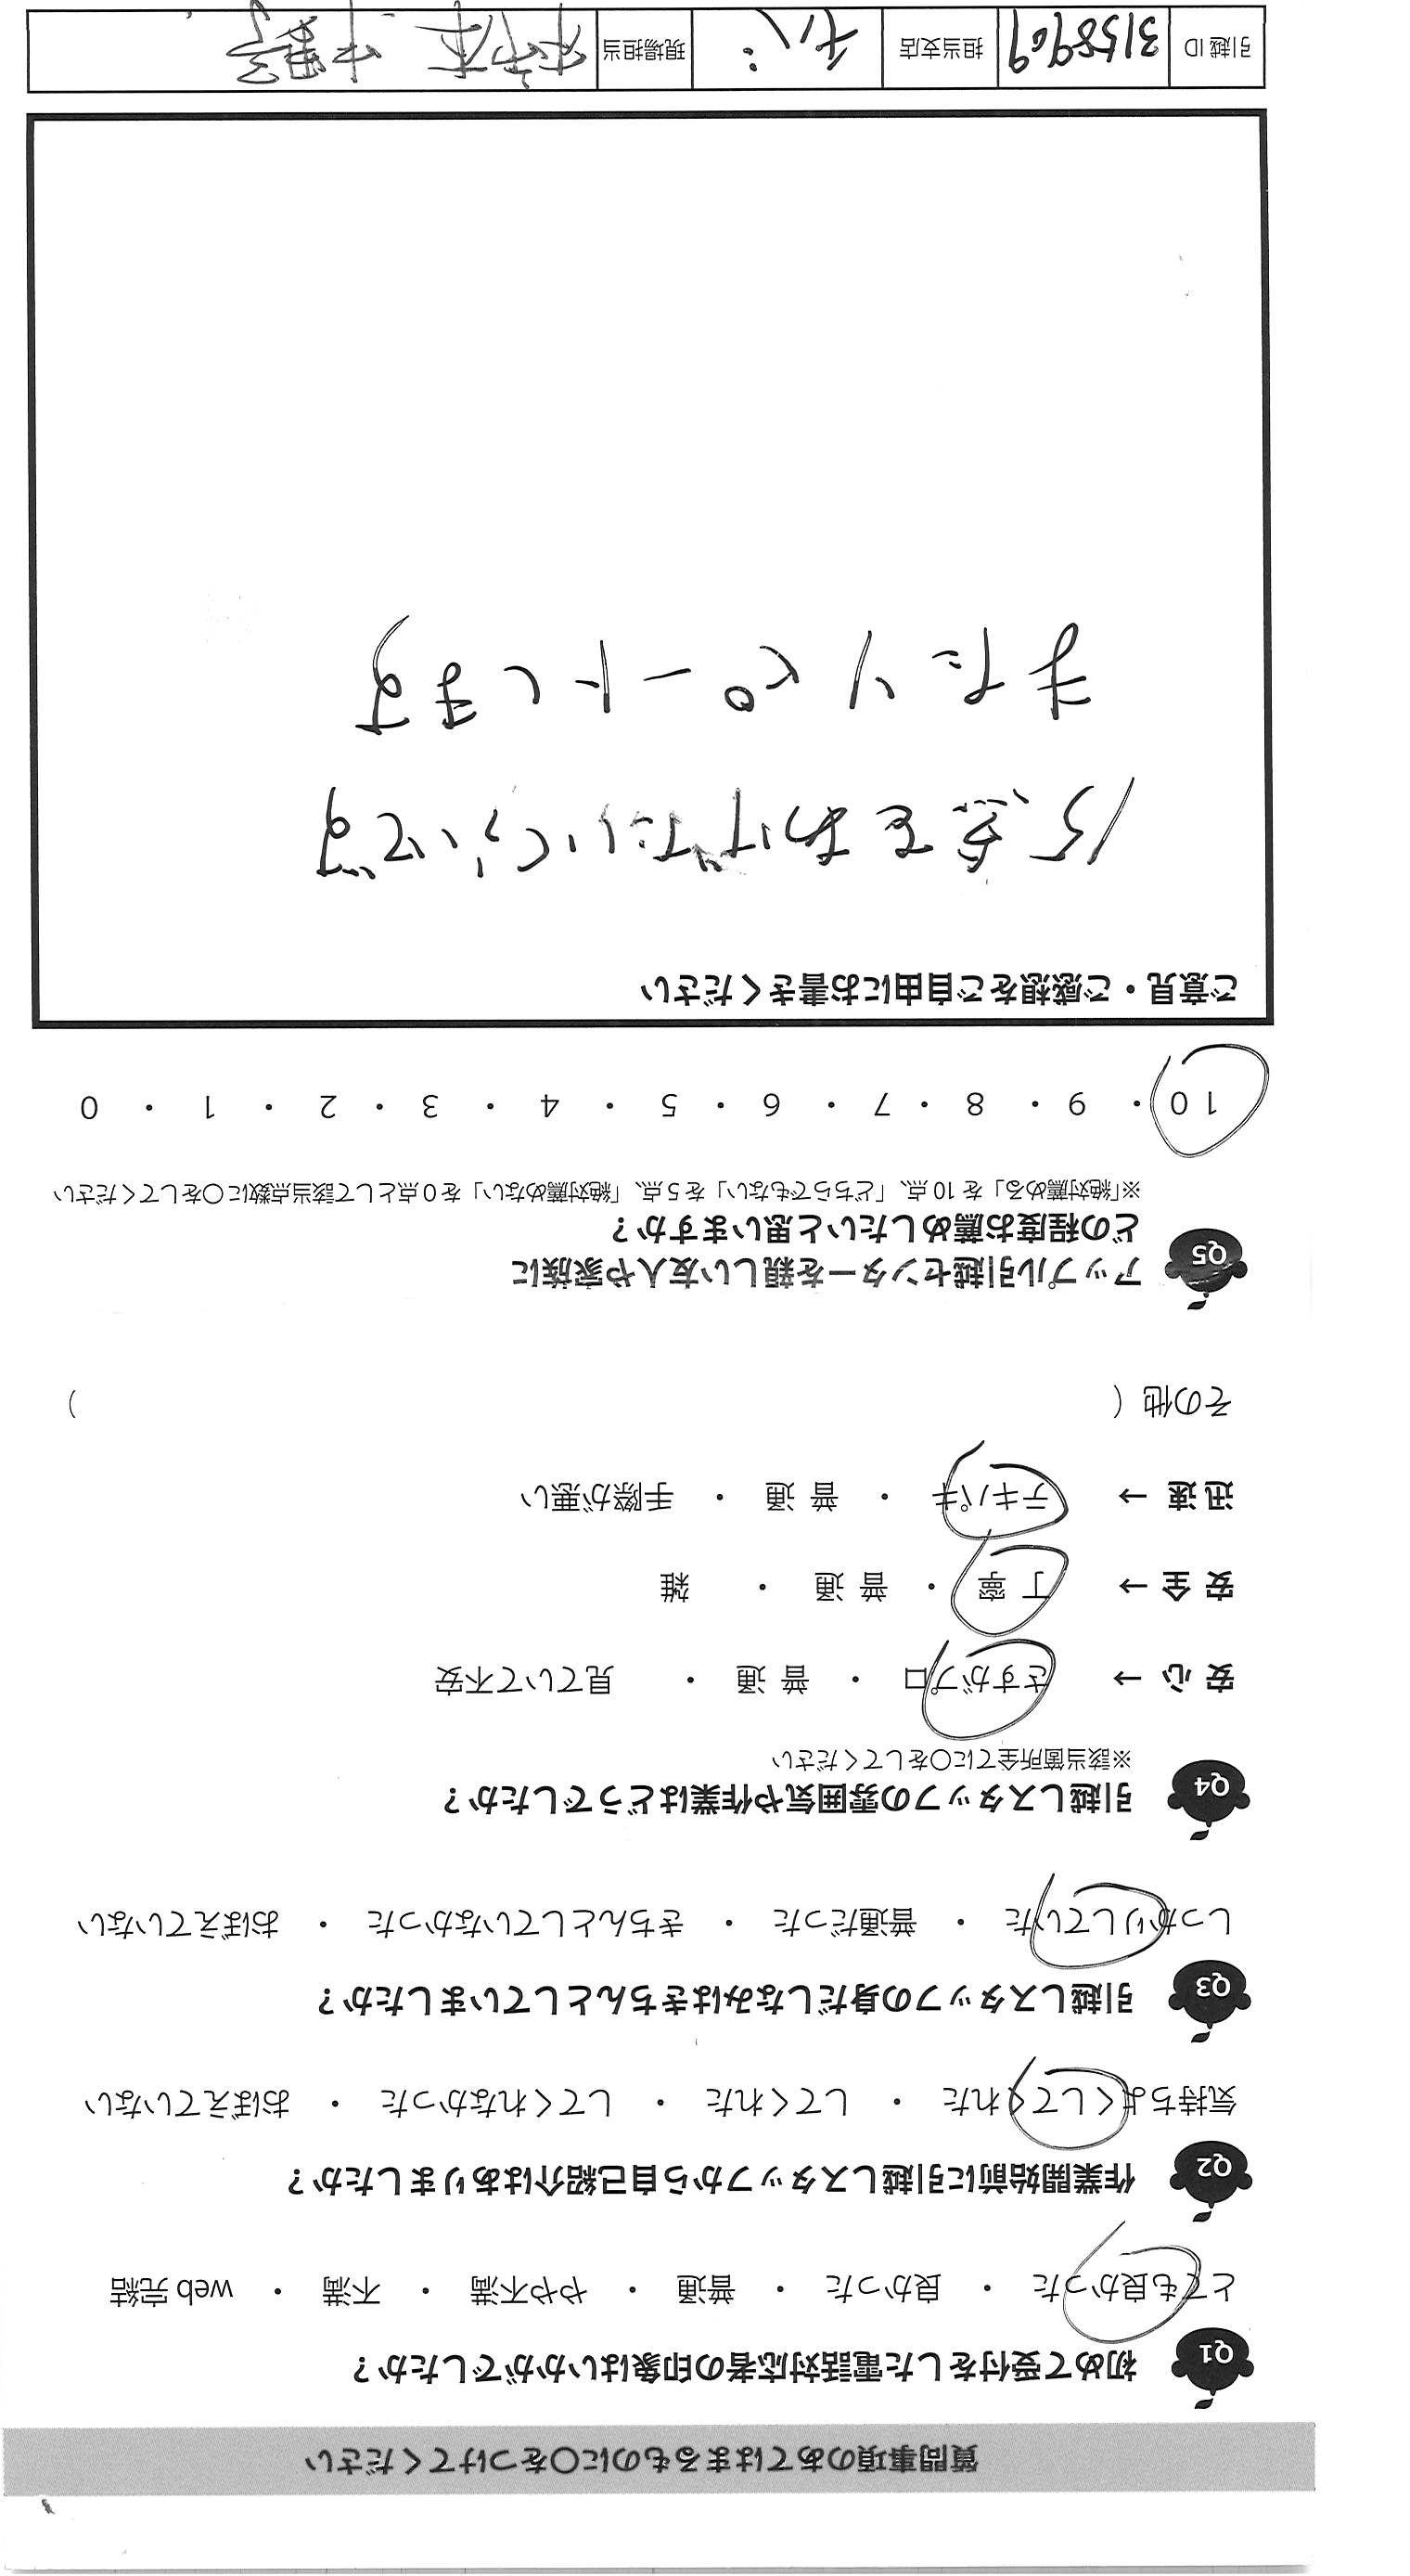 質問事項のあてはまるものに○をつけてください
Q1 初めて受付をした電話対応者の印象はいかがでしたか？
とても良かった ・ 良かった ・ 普通 ・ やや不満 ・ 不満 ・ web 完結
Q2 作業開始前に引越しスタッフから自己紹介はありましたか？
気持ちよくしてくれた ・ してくれた ・ してくれなかった ・ おぼえていない
Q3 引越しスタッフの身だしなみはきちんとしていましたか？
しっかりしていた ・ 普通だった ・ きちんとしていなかった ・ おぼえていない
Q4 引越しスタッフの雰囲気や作業はどうでしたか？
※該当箇所全てに○をしてください
安 心 → さすがプロ ・ 普 通 ・ 見ていて不安
安 全 → 丁 寧 ・ 普 通 ・ 雑
迅 速 → テキパキ ・ 普 通 ・ 手際が悪い
その他（ ）
Q5 アップル引越センターを親しい友人や家族に
どの程度お薦めしたいと思いますか？
※「絶対薦める」を 10 点、「どちらでもない」を 5 点、「絶対薦めない」を 0 点として該当点数に○をしてください
10 ・ 9 ・ 8 ・ 7 ・ 6 ・ 5 ・ 4 ・ 3 ・ 2 ・ 1 ・ 0
ご意見・ご感想をご自由にお書きください
15点をあげたいくらいです
またリピートします
引越 ID 3158909 担当支店 現場担当